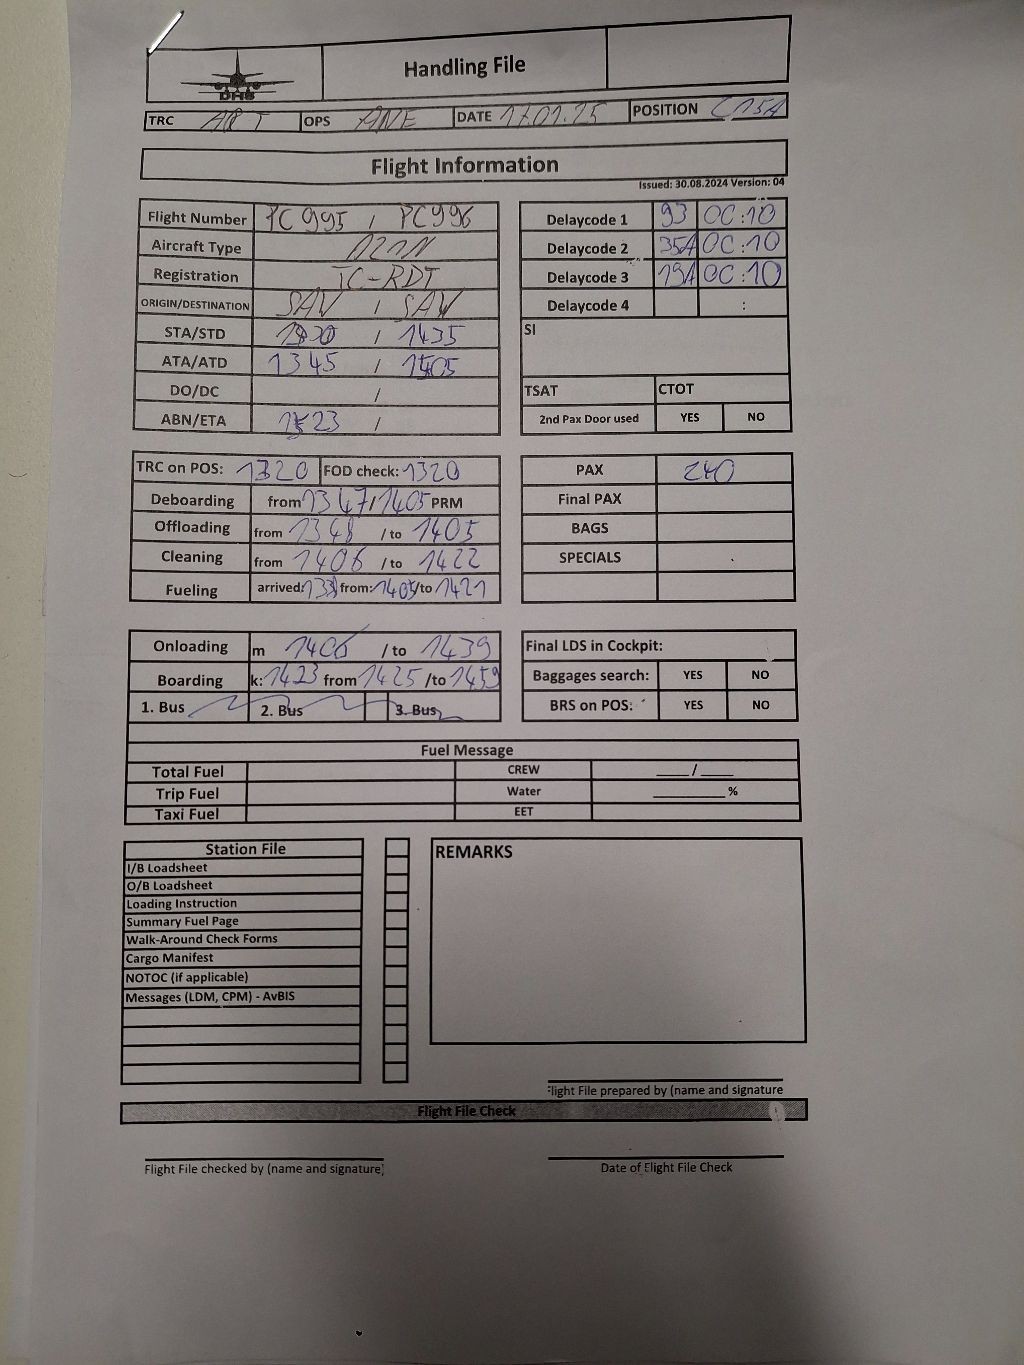 DHS
Handling File
TRC ART OPS ANE DATE 17.01.25 POSITION C15A
Flight Information
Issued: 30.08.2024 Version: 04
Flight Number PC 995 / PC996
Delaycode 1 93 00:10
Aircraft Type
Delaycode 2 35A 00:10
Registration TC-RDT
Delaycode 3 19A 00:10
ORIGIN/DESTINATION SAW / SAW
Delaycode 4 :
STA/STD / 1435
SI
ATA/ATD 1345 /
DO/DC /
TSAT CTOT
ABN/ETA /
2nd Pax Door used YES NO
TRC on POS: 1320 FOD check: 1320
PAX 240
Deboarding from 1347/1405 PRM
Final PAX
Offloading from 1348 /to 1405
BAGS
Cleaning from 1406 /to 1422
SPECIALS
Fueling arrived: from: /to 1421
Onloading m 1406 /to 1439
Final LDS in Cockpit:
Boarding k: 1423 from 1425 /to 1459
Baggages search: YES NO
1. Bus 2. Bus 3. Bus
BRS on POS: YES NO
Fuel Message
Total Fuel CREW ____/____
Trip Fuel Water ________%
Taxi Fuel EET
Station File
REMARKS
I/B Loadsheet
O/B Loadsheet
Loading Instruction
Summary Fuel Page
Walk-Around Check Forms
Cargo Manifest
NOTOC (if applicable)
Messages (LDM, CPM) - AvBIS
Flight File prepared by (name and signature
Flight File Check
Flight File checked by (name and signature)
Date of Flight File Check